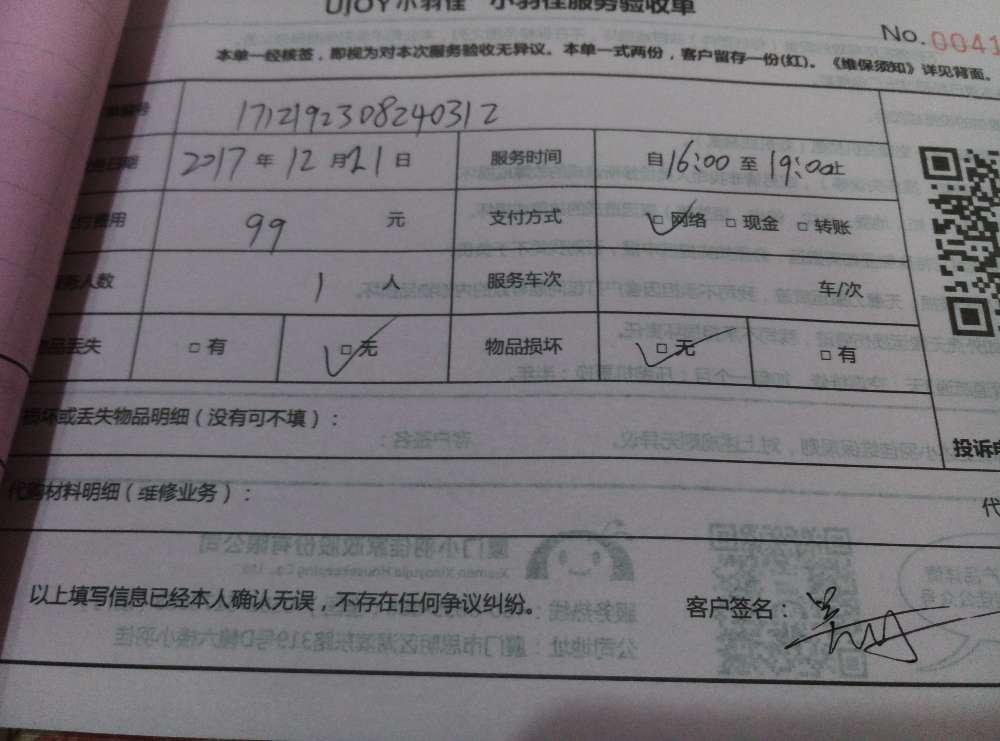 UJOY小羽佳 小羽佳服务验收单
No. 0041
本单一经核签，即视为对本次服务验收无异议。本单一式两份，客户留存一份(红)。《维保须知》详见背面。
编号 1712192308240312
日期 2017 年 12 月 21 日 服务时间 自 16:00 至 19:00 止
费用 99 元 支付方式 □网络 □现金 □转账
人数 1 人 服务车次 车/次
物品丢失 □有 □无 物品损坏 □无 □有
损坏或丢失物品明细（没有可不填）：
投诉电
代购材料明细（维修业务）：
代
以上填写信息已经本人确认无误，不存在任何争议纠纷。 客户签名：